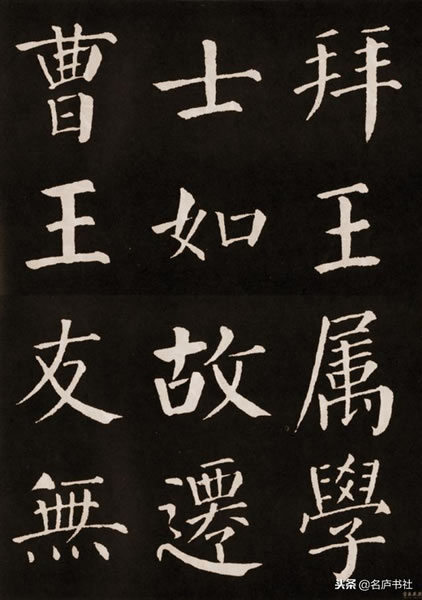 拜王属學
士如故遷
曹王友無
头条 @名庐书社